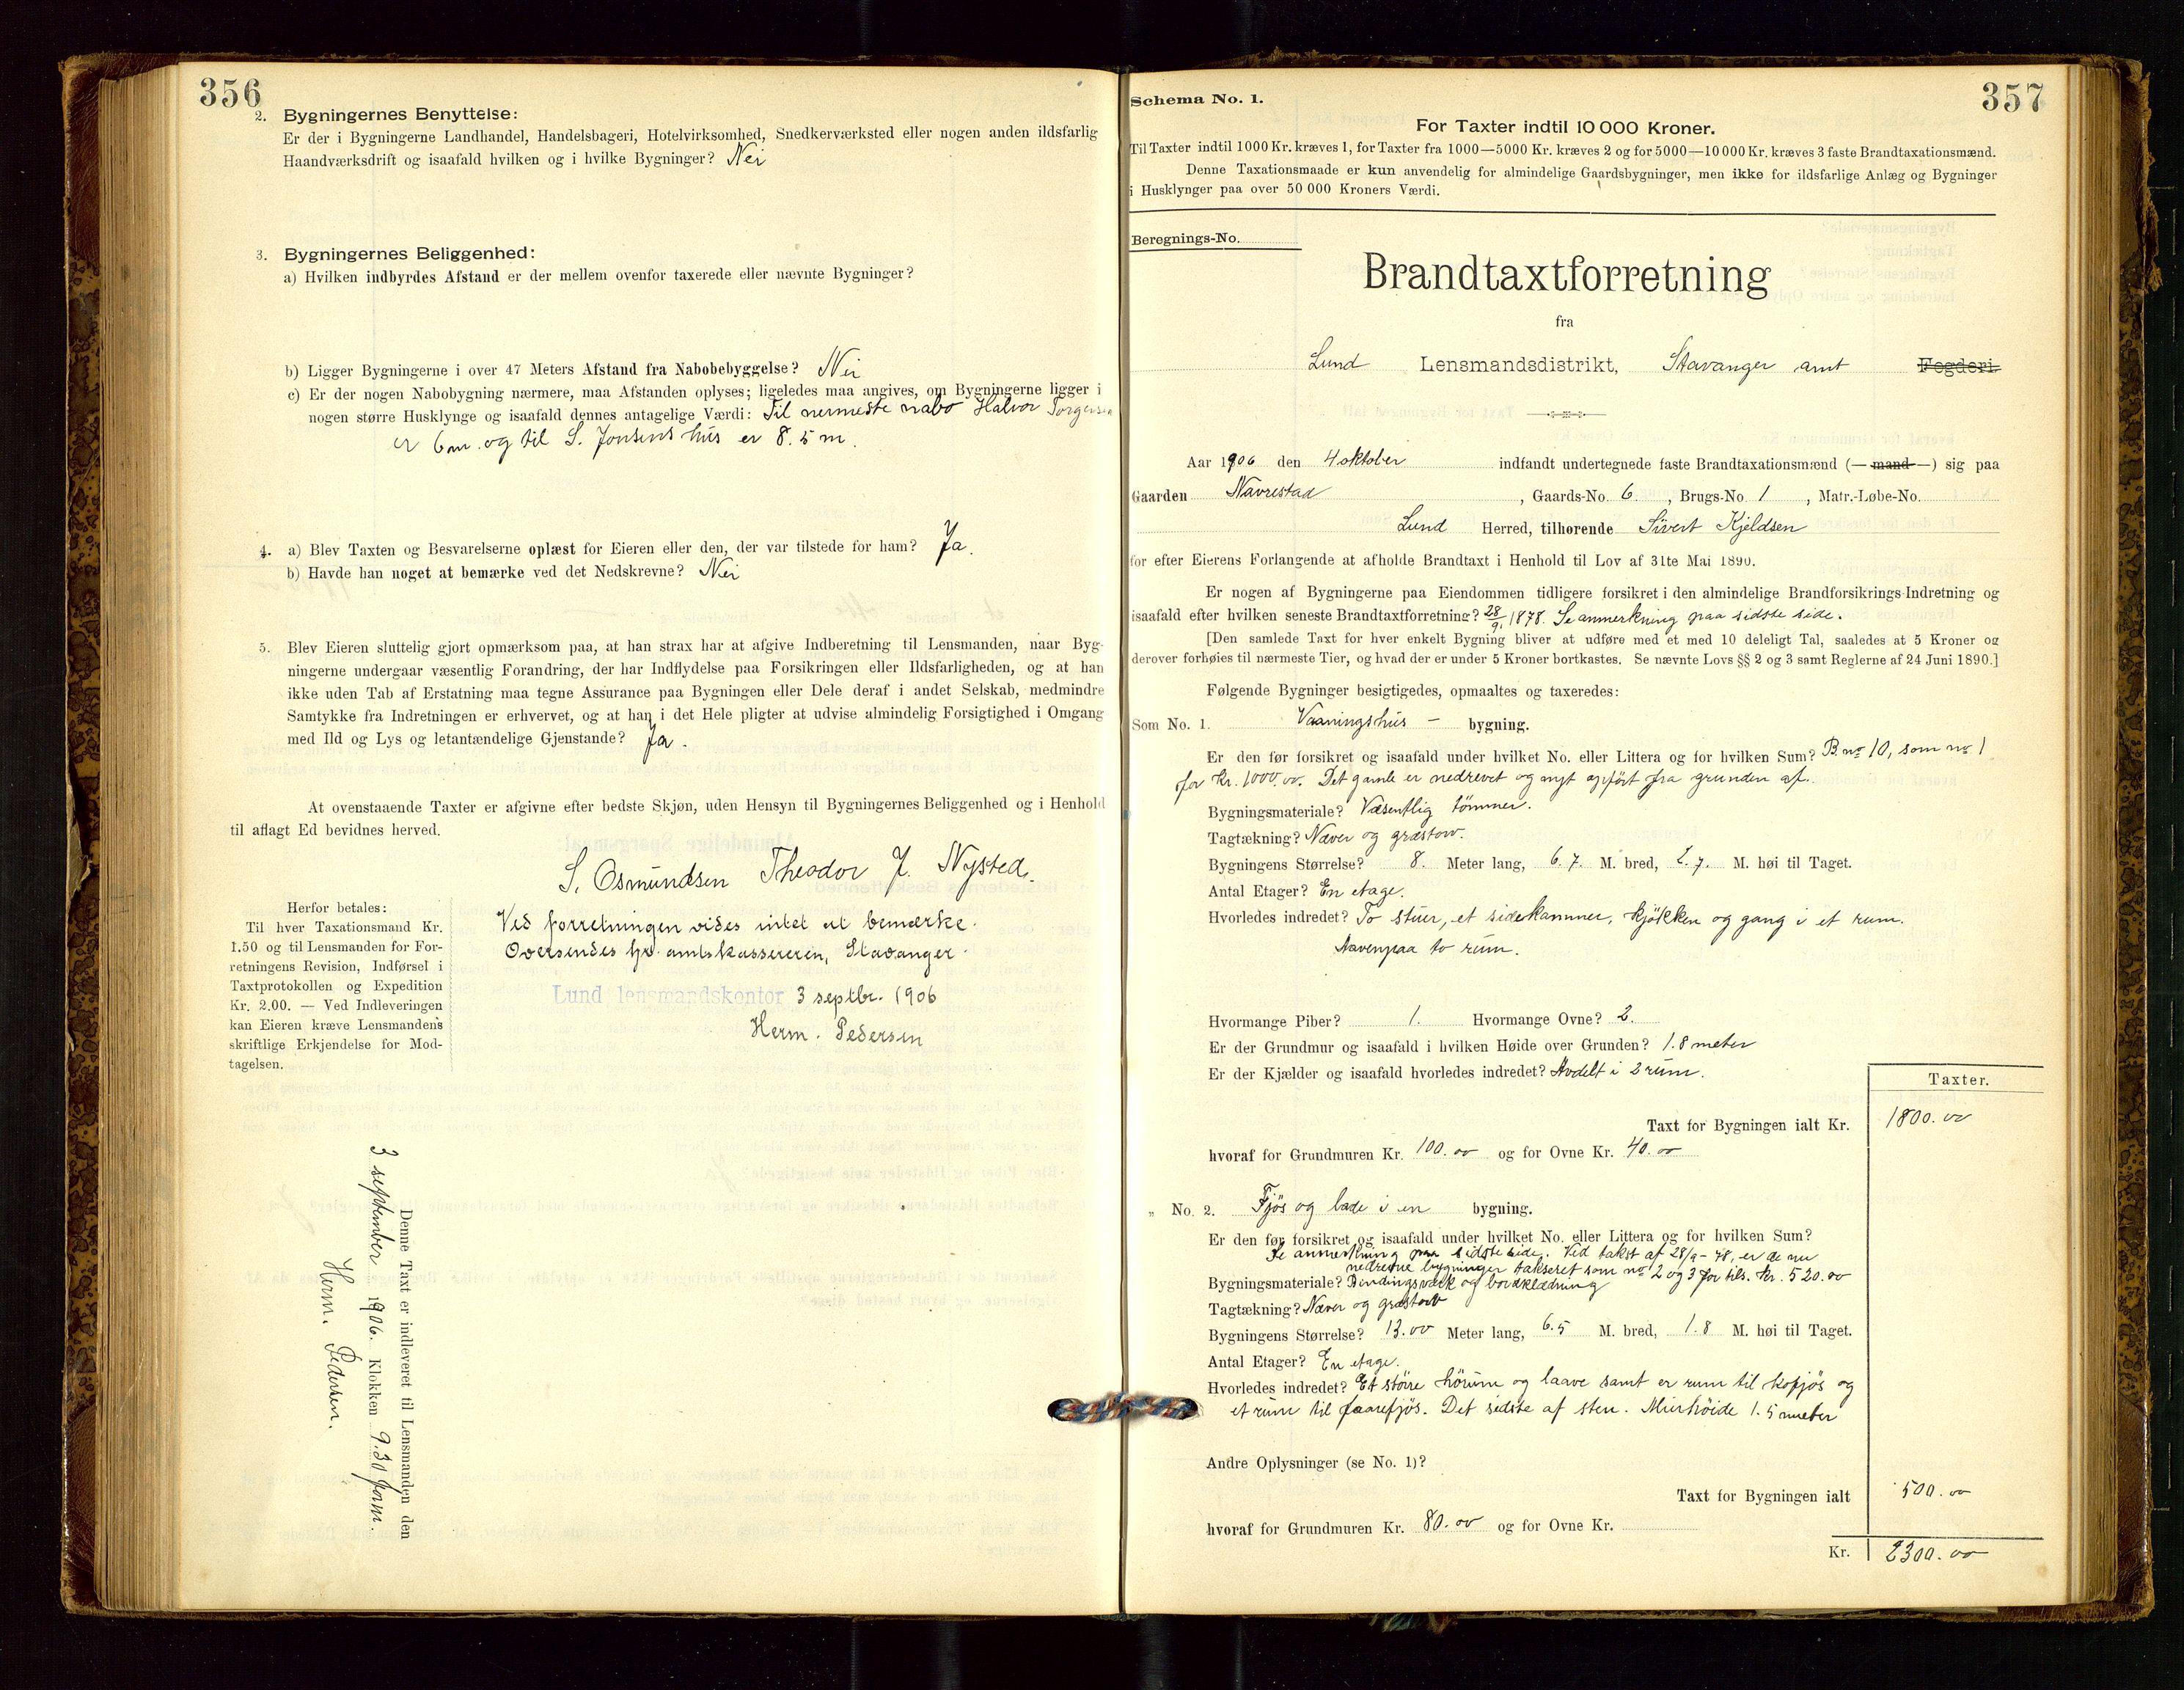 356
2. Bygningernes Benyttelse:
Er der i Bygningerne Landhandel, Handelsbageri, Hotelvirksomhed, Snedkerværksted eller nogen anden ildsfarlig
Haandværksdrift og isaafald hvilken og i hvilke Bygninger? Nei
3. Bygningernes Beliggenhed:
a) Hvilken indbyrdes Afstand er der mellem ovenfor taxerede eller nævnte Bygninger?
b) Ligger Bygningerne i over 47 Meters Afstand fra Nabobebyggelse? Nei
c) Er der nogen Nabobygning nærmere, maa Afstanden oplyses; ligeledes maa angives, om Bygningerne ligger i
nogen større Husklynge og isaafald dennes antagelige Værdi: Til nermeste nabo Halvor Torgersen
er 6 m. og til S. Jonsens hus er 8.5 m.
4. a) Blev Taxten og Besvarelserne oplæst for Eieren eller den, der var tilstede for ham? Ja.
b) Havde han noget at bemærke ved det Nedskrevne? Nei
5. Blev Eieren sluttelig gjort opmærksom paa, at han strax har at afgive Indberetning til Lensmanden, naar Byg-
ningerne undergaar væsentlig Forandring, der har Indflydelse paa Forsikringen eller Ildsfarligheden, og at han
ikke uden Tab af Erstatning maa tegne Assurance paa Bygningen eller Dele deraf i andet Selskab, medmindre
Samtykke fra Indretningen er erhvervet, og at han i det Hele pligter at udvise almindelig Forsigtighed i Omgang
med Ild og Lys og letantændelige Gjenstande? Ja.
At ovenstaaende Taxter er afgivne efter bedste Skjøn, uden Hensyn til Bygningernes Beliggenhed og i Henhold
til aflagt Ed bevidnes herved.
S. Osmundsen Theodor J. Nysted.
Herfor betales:
Til hver Taxationsmand Kr.
1.50 og til Lensmanden for For-
retningens Revision, Indførsel i
Taxtprotokollen og Expedition
Kr. 2.00. — Ved Indleveringen
kan Eieren kræve Lensmandens
skriftlige Erkjendelse for Mod-
tagelsen.
Ved forretningen vides intet at bemærke.
Oversendes hr. amtskassereren, Stavanger.
Lund lensmandskontor 3 septbr. 1906
Herm. Pedersen
Denne Taxt er indleveret til Lensmanden den
3 september 1906. Klokken 9.30 form.
Herm. Pedersen.
357
Schema No. 1.
For Taxter indtil 10 000 Kroner.
Til Taxter indtil 1000 Kr. kræves 1, for Taxter fra 1000—5000 Kr. kræves 2 og for 5000—10 000 Kr. kræves 3 faste Brandtaxationsmænd.
Denne Taxationsmaade er kun anvendelig for almindelige Gaardsbygninger, men ikke for ildsfarlige Anlæg og Bygninger
i Husklynger paa over 50 000 Kroners Værdi.
Beregnings-No.
Brandtaxtforretning
fra
Lund Lensmandsdistrikt, Stavanger amt Fogderi.
Aar 1906 den 4 oktober indfandt undertegnede faste Brandtaxationsmænd (— mand —) sig paa
Gaarden Navrestad, Gaards-No. 6, Brugs-No. 1, Matr.-Løbe-No.
Lund Herred, tilhørende Sivert Kjeldsen
for efter Eierens Forlangende at afholde Brandtaxt i Henhold til Lov af 31te Mai 1890.
Er nogen af Bygningerne paa Eiendommen tidligere forsikret i den almindelige Brandforsikrings-Indretning og
isaafald efter hvilken seneste Brandtaxtforretning? 28/9 1878. Se anmerkning paa sidste side.
[Den samlede Taxt for hver enkelt Bygning bliver at udføre med et med 10 deleligt Tal, saaledes at 5 Kroner og
derover forhøies til nærmeste Tier, og hvad der er under 5 Kroner bortkastes. Se nævnte Lovs §§ 2 og 3 samt Reglerne af 24 Juni 1890.]
Følgende Bygninger besigtigedes, opmaaltes og taxeredes:
Som No. 1. Vaaningshus - bygning.
Er den før forsikret og isaafald under hvilket No. eller Littera og for hvilken Sum? B. no 10, som no 1
for kr. 1000.00. Det gamle er nedrevet og nyt opført fra grunden af.
Bygningsmateriale? Væsentlig tømmer.
Tagtækning? Næver og græstorv.
Bygningens Størrelse? 8. Meter lang, 6.7 M. bred, 2.7. M. høi til Taget.
Antal Etager? En etage.
Hvorledes indredet? To stuer, et sidekammer, kjøkken og gang i et rum.
Aavenpaa to rum.
Hvormange Piber? 1. Hvormange Ovne? 2.
Er der Grundmur og isaafald i hvilken Høide over Grunden? 1.8 meter
Er der Kjælder og isaafald hvorledes indredet? Avdelt i 2 rum.
Taxter.
Taxt for Bygningen ialt Kr. 1800.00
hvoraf for Grundmuren Kr. 100.00 og for Ovne Kr. 40.00
„ No. 2. Fjøs og lade i en bygning.
Er den før forsikret og isaafald under hvilket No. eller Littera og for hvilken Sum?
Se anmerkning paa sidste side. Ved takst af 28/9-78, er de nu
nedrevne bygninger takseret som no 2 og 3 for tils. kr. 520.00
Bygningsmateriale? Bindingsværk og bordklædning
Tagtækning? Næver og græstorv
Bygningens Størrelse? 13.00 Meter lang, 6.5 M. bred, 1.8 M. høi til Taget.
Antal Etager? En etage.
Hvorledes indredet? Et større hørum og laave samt er rum til kofjøs og
et rum til faarefjøs. Det sidste af sten. Murhøide 1.5 meter
Andre Oplysninger (se No. 1)?
Taxt for Bygningen ialt 500.00
hvoraf for Grundmuren Kr. 80.00 og for Ovne Kr.
Kr. 2300.00